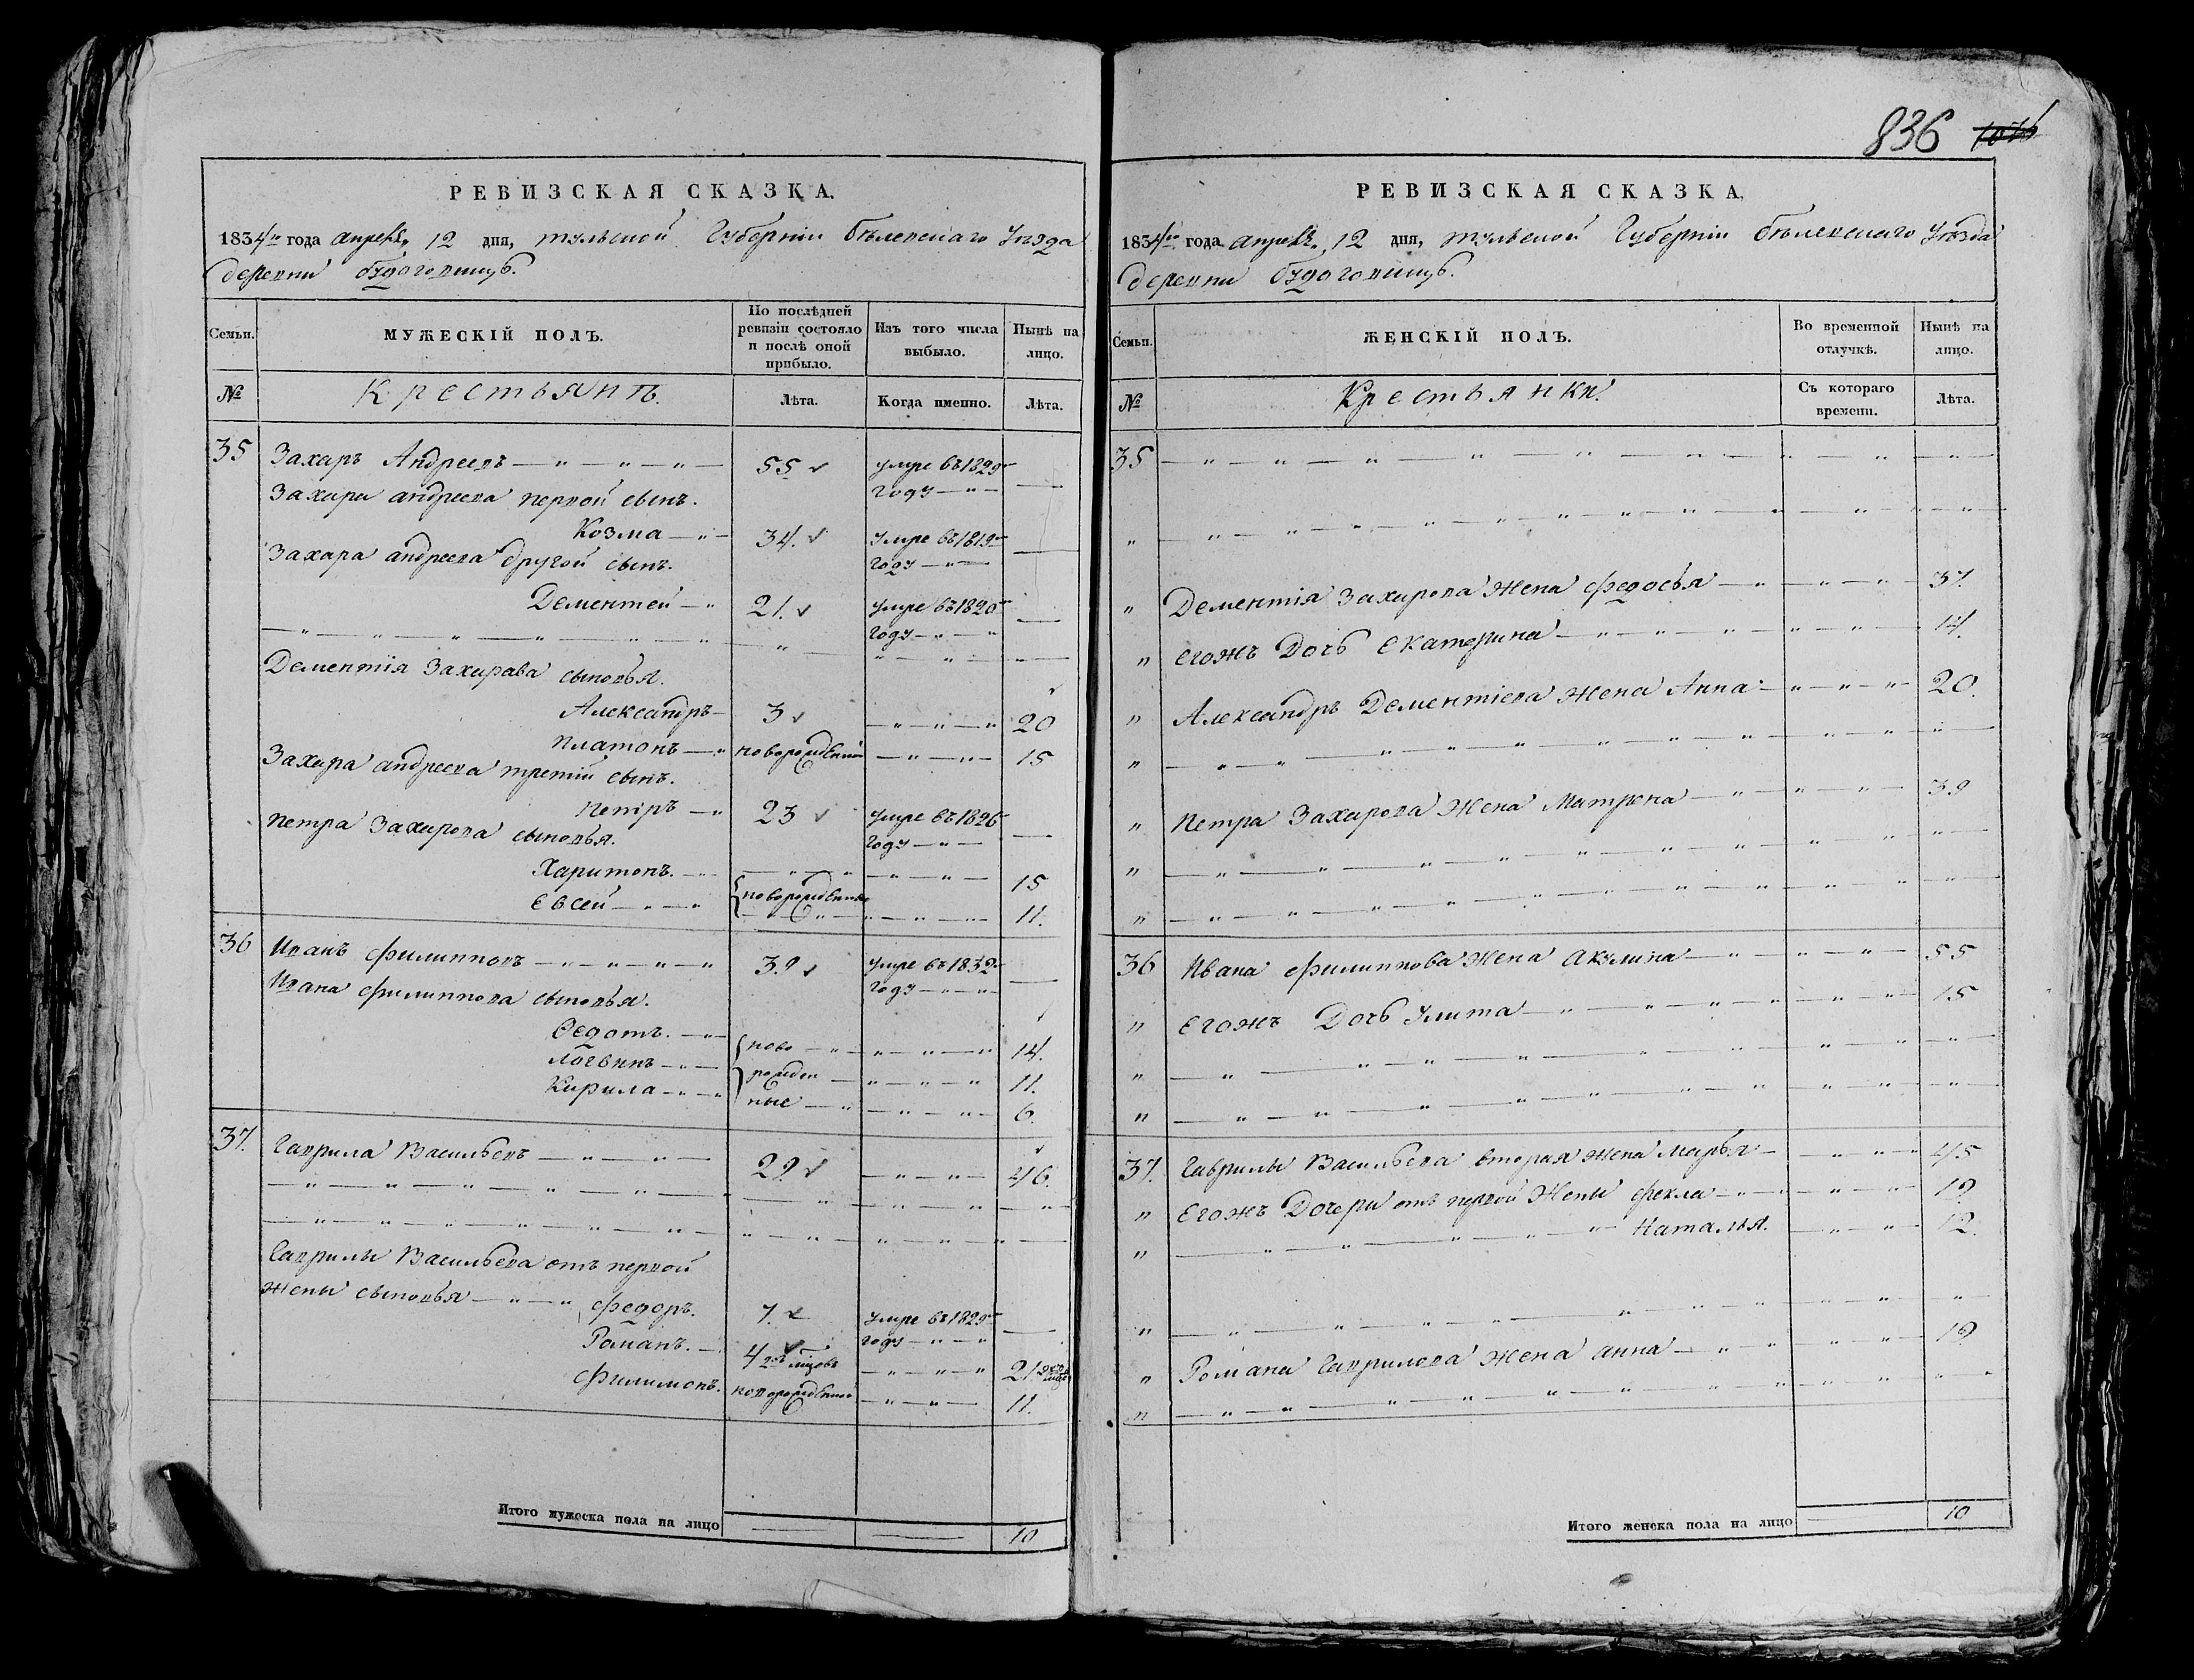 836 1076
РЕВИЗСКАЯ СКАЗКА.
1834го года апреля 12 дня, тульской Губерніи бѣлевскаго Уѣзда
деревни будоговищъ.
Семьи.
МУЖЕСКІЙ ПОЛЪ.
По послѣдней ревизіи состояло и послѣ оной прибыло.
Изъ того числа выбыло.
Нынѣ на лицо.
№
Крестьянъ.
Лѣта.
Когда именно.
Лѣта.
35 Захаръ Андреевъ — " — " — " — 55 умре въ 1829м
году — " —
Захара андреева первой сынъ.
Козма — " — 34. умре въ 1819м
году — " —
Захара андреева другой сынъ.
Дементей — " 21. умре въ 1820м
году — " — "
Дементія Захарава сыновья.
Александръ — 3 — " — " — " 20
Платонъ — " новорожденный — " — " — 15
Захара андреева третій сынъ.
Петръ — " 23 умре въ 1826
году — " —
Петра Захарова сыновья.
Харитонъ. — " — " — " — 15
новорожденные
Евсей — " — " " — " — " — 11.
36 Иванъ филипповъ — " — " — " — " 39 умре въ 1832м
году — " — " —
Ивана филиппова сыновья.
Ѳедотъ. — " — ново — " — " — " — " 14.
Логвинъ — " — рожден — " — " — " 11.
Кирила — " — " ные — " — " — " — 6.
37. Гаврила Васильевъ — " — " — 29 — " — " — 46.
Гаврилы Васильева отъ первой
жены сыновья — " — " федоръ. 7. умре въ 1829м
году — " — "
Романъ. — 4 2хъ мѣцовъ — " — " — " 21.
филимонъ. новорожденной — " — " — 11.
Итого мужеска пола на лицо 10
РЕВИЗСКАЯ СКАЗКА.
1834го года апреля 12 дня, тульской Губерніи бѣлевскаго Уѣзда
деревни будоговищъ.
Семьи.
ЖЕНСКІЙ ПОЛЪ.
Во временной отлучкѣ.
Нынѣ на лицо.
№
Крестьянки.
Съ котораго времени.
Лѣта.
35 — " — " — " — " — " — " —
" — " — " — " — " — " — " —
" Дементія Захарова жена федосья — " — " — " — 37.
" егожъ Дочь екатерина — " — " — " — " — 14.
" Александръ Дементіева жена Анна — " — " — " — 20.
" — " — " — " — " — " — " —
" Петра Захарова жена Матрена — " — " — " — 39
" — " — " — " — " — " — " —
" — " — " — " — " — " — " —
36 Ивана филиппова жена акулина — " — " — " — 55
" егожъ Дочь улита — " — " — " — " — 15
" — " — " — " — " — " —
" — " — " — " — " — " —
37. Гаврилы Васильева вторая жена Марья — " — " — 45
" егожъ Дочери отъ первой жены фекла — " — " — 19
" — " — " — " — " Наталья. — " — " — 12.
" — " — " — " — " — " —
" Романа Гаврилова жена анна — " — " — " — 19
" — " — " — " — " — " —
Итого женска пола на лицо 10